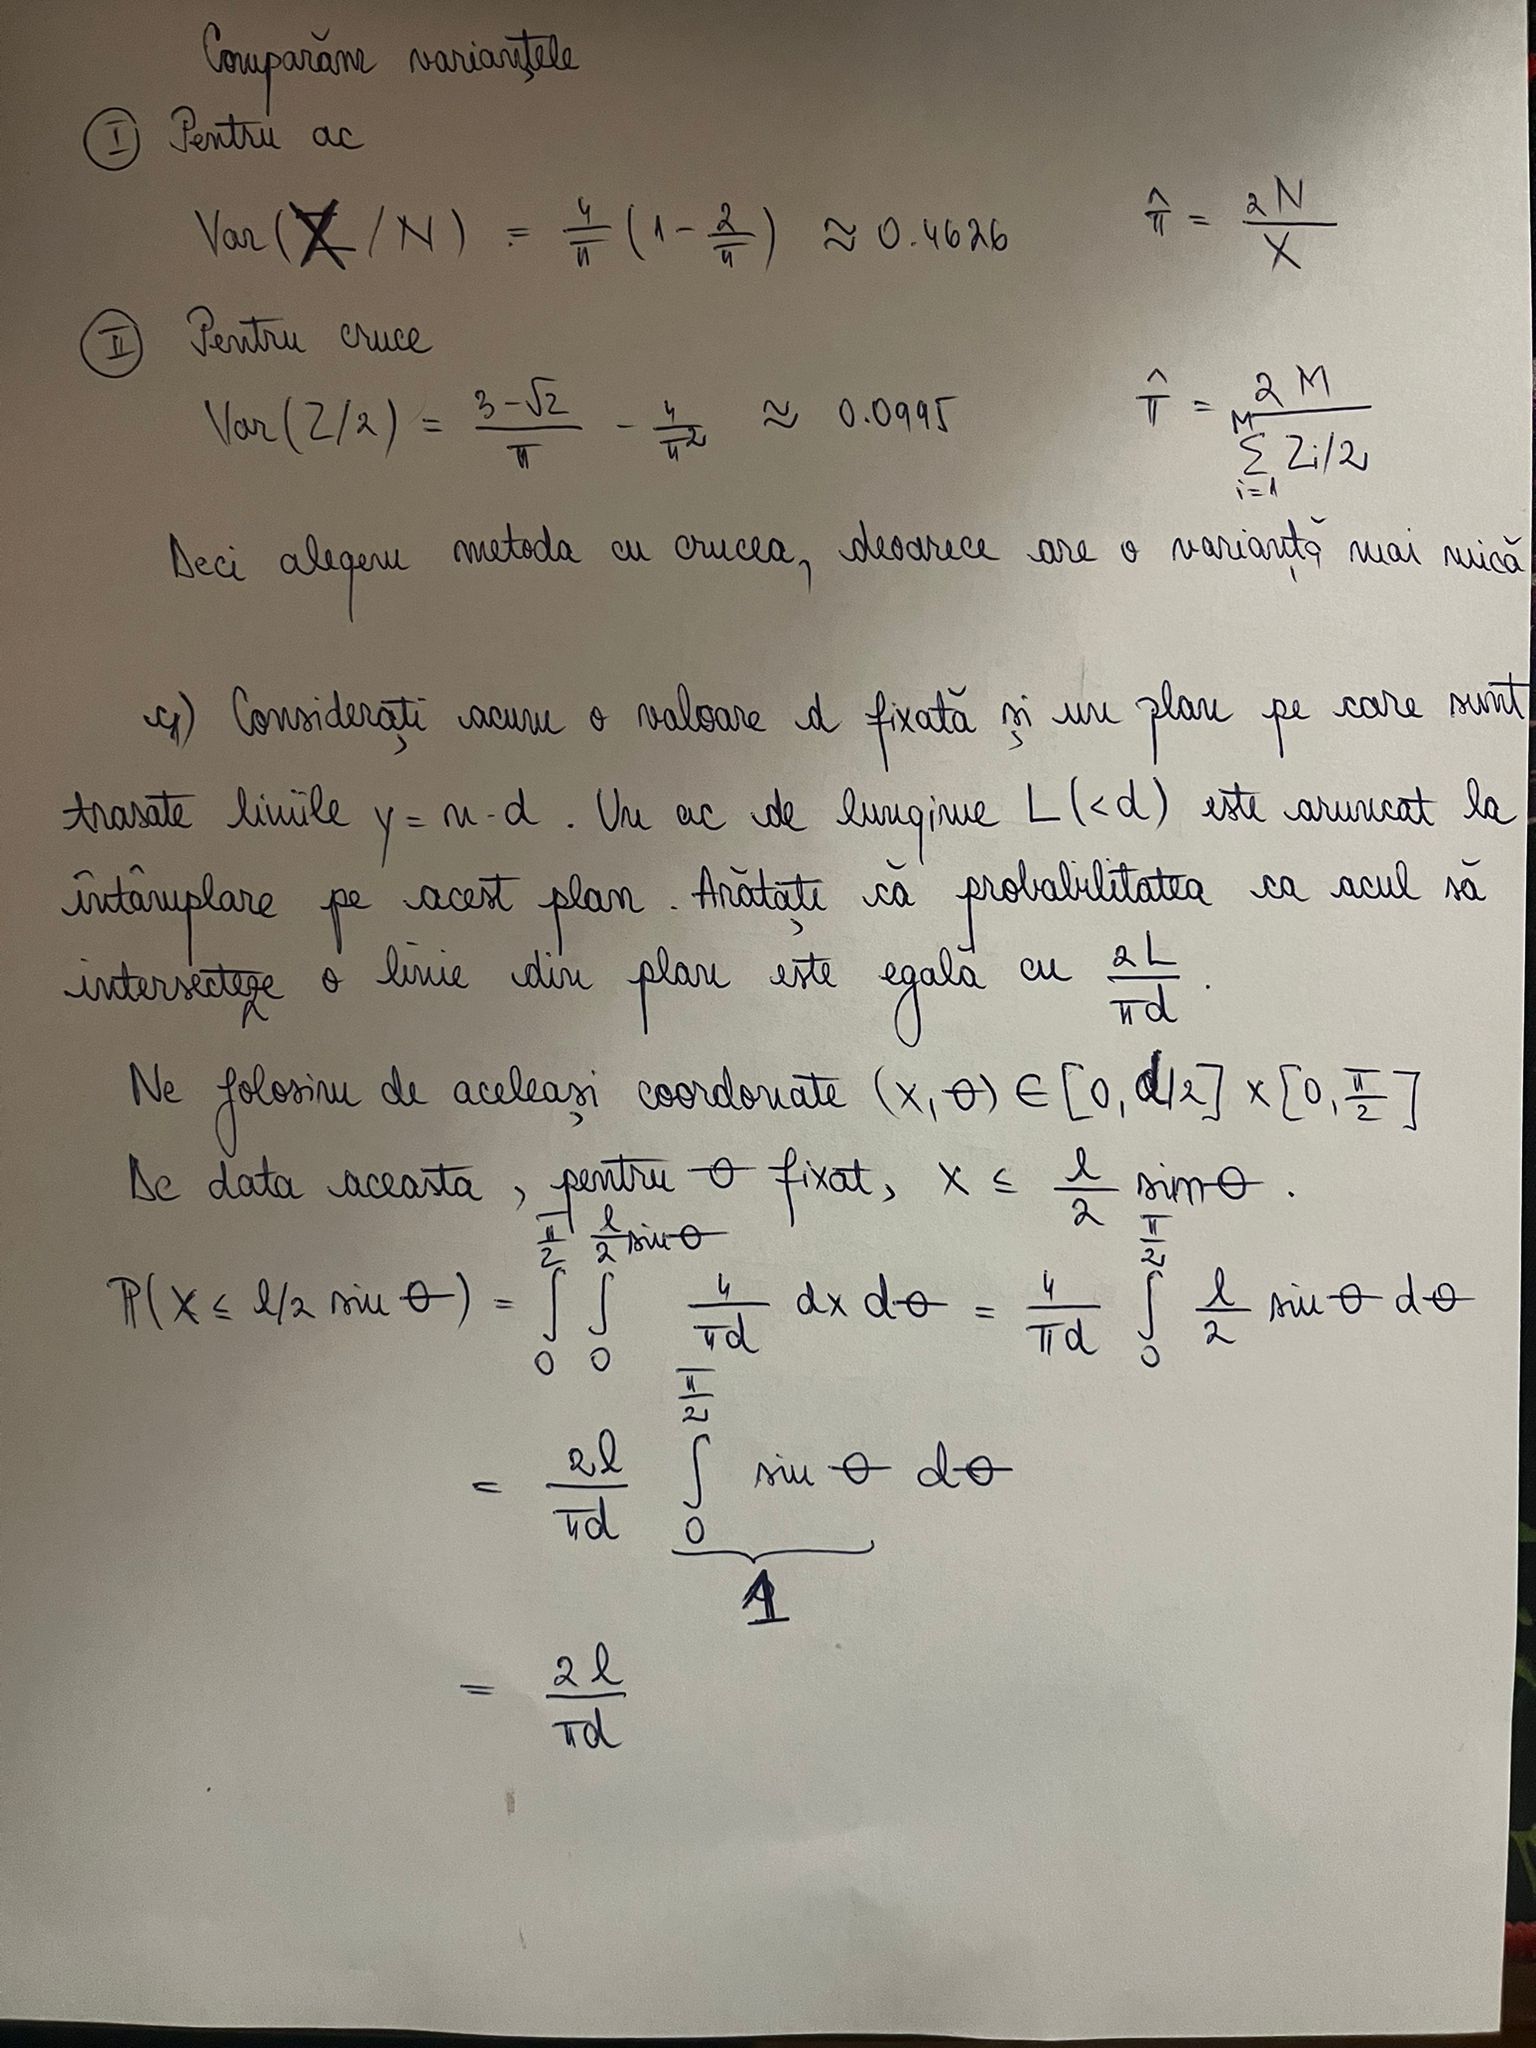 Comparăm varianțele
I Pentru ac
Var(X/N) = 4/π (1 - 2/π) ≈ 0.4626    π̂ = 2N/X
II Pentru cruce
Var(Z/2) = (3-√2)/π - 4/π² ≈ 0.0995    π̂ = 2M / ∑_{i=1}^{M} Zi/2
Deci alegem metoda cu crucea, deoarece are o varianță mai mică
Considerați acum o valoare d fixată și un plan pe care sunt
trasate liniile y = n·d. Un ac de lungime L(<d) este aruncat la
întâmplare pe acest plan. Arătați că probabilitatea ca acul să
intersecteze o linie din plan este egală cu 2L/πd.
Ne folosim de aceleași coordonate (x,θ) ∈ [0, d/2] x [0, π/2]
De data aceasta, pentru θ fixat, x ≤ l/2 sin θ.
P(x ≤ l/2 sin θ) = ∫_0^{π/2} ∫_0^{l/2 sin θ} 4/πd dx dθ = 4/πd ∫_0^{π/2} l/2 sin θ dθ
= 2l/πd ∫_0^{π/2} sin θ dθ
1
= 2l/πd